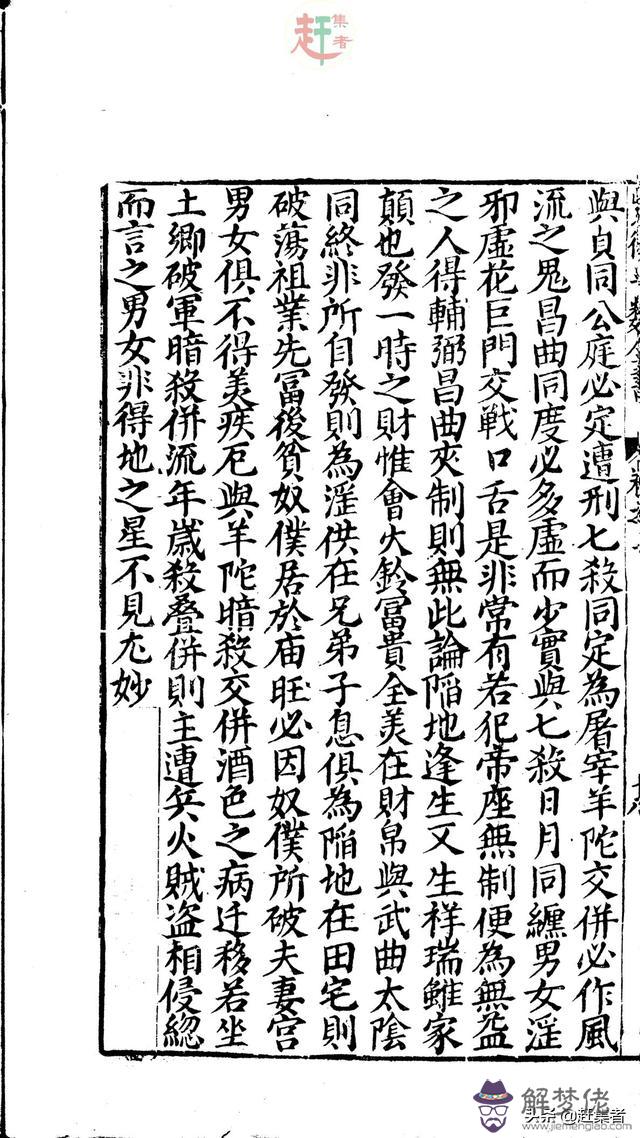 赶集者
與貞同公庭必定遭刑七殺同定為屠宰羊陀交併必作風
流之鬼昌曲同度必多虛而少實與七殺日月同纏男女淫
邪虛花巨門交戰口舌是非常有若犯帝座無制便為無益
之人得輔弼昌曲夾制則無此論陷地逢生又生祥瑞雖家
顛也發一時之財惟會火鈴富貴全美在財帛與武曲太陰
同終非所自發則為淫佚在兄弟子息俱為陷地在田宅則
破蕩祖業先富後貧奴僕居於庙旺必因奴僕所破夫妻宮
男女俱不得美疾厄與羊陀暗殺交併酒色之病迁移若坐
土鄉破軍暗殺併流年歲殺叠併則主遭兵火賊盗相侵緫
而言之男女非得地之星不見尤妙
解梦佬
www.jiemenglao.com
头条@赶集者